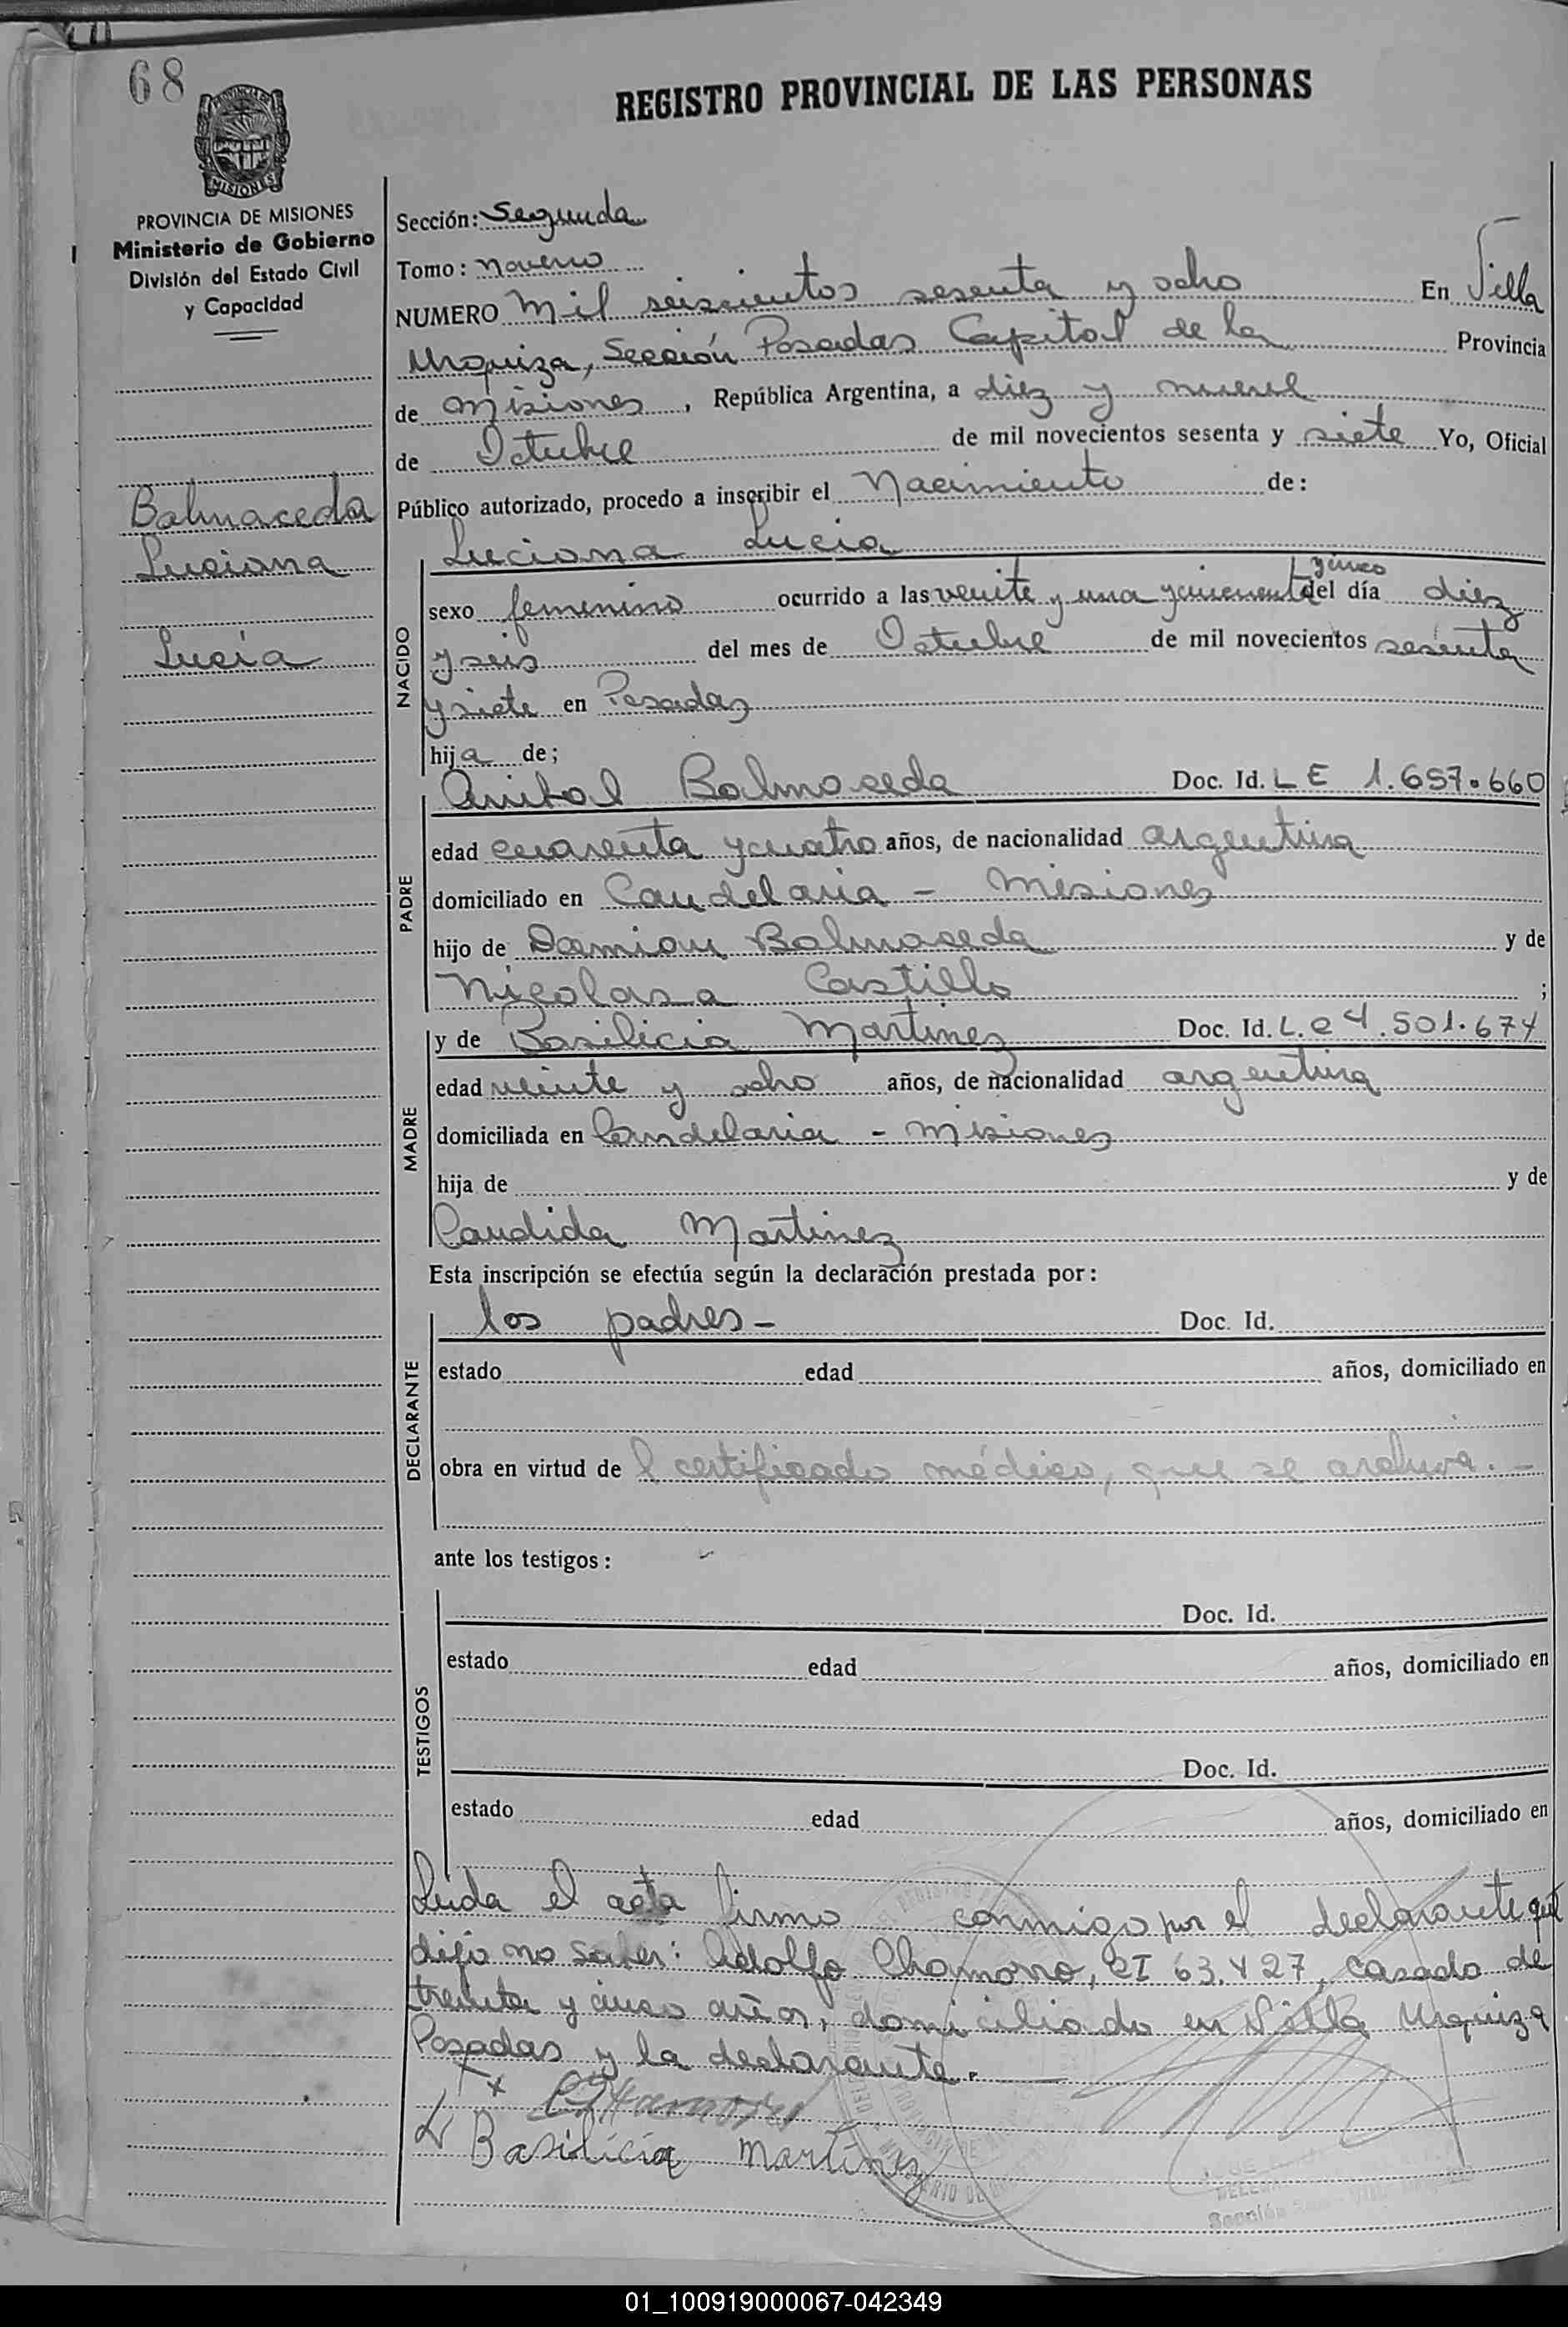 68
REGISTRO PROVINCIAL DE LAS PERSONAS
MISIONES
PROVINCIA DE MISIONES
Ministerio de Gobierno
División del Estado Civil
y Capacidad
Balmaceda
Luciana
Lucía
Sección: Segunda
Tomo: noveno
NUMERO Mil seiscientos sesenta y ocho En Villa
Urquiza, Sección Posadas Capital de la Provincia
de Misiones, República Argentina, a diez y nueve
de Octubre de mil novecientos sesenta y siete Yo, Oficial
Público autorizado, procedo a inscribir el Nacimiento de:
Luciana Lucia
NACIDO
y cinco
sexo femenino ocurrido a las veinte y una y cincuenta del día diez
y seis del mes de Octubre de mil novecientos sesenta
y siete en Posadas
hija de;
PADRE
Anibal Balmaceda Doc. Id. L E 1.657.660
edad cuarenta y cuatro años, de nacionalidad argentina
domiciliado en Candelaria - Misiones
hijo de Damian Balmaceda y de
Nicolasa Castillo ;
MADRE
y de Basilicia Martinez Doc. Id. L.C 4.501.674
edad veinte y ocho años, de nacionalidad argentina
domiciliada en Candelaria - Misiones
hija de y de
Candida Martinez
Esta inscripción se efectúa según la declaración prestada por:
DECLARANTE
los padres - Doc. Id.
estado edad años, domiciliado en
obra en virtud de l certificado médico, que se archiva. -
ante los testigos:
TESTIGOS
Doc. Id.
estado edad años, domiciliado en
Doc. Id.
estado edad años, domiciliado en
Leida el acta firmo conmigo por el declarante que
dijo no saber: Adolfo Chamorro, CI 63.427, casado de
treinta y cinco años, domiciliado en Villa Urquiza
Posadas y la declarante.
Basilicia Martínez
01_100919000067-042349